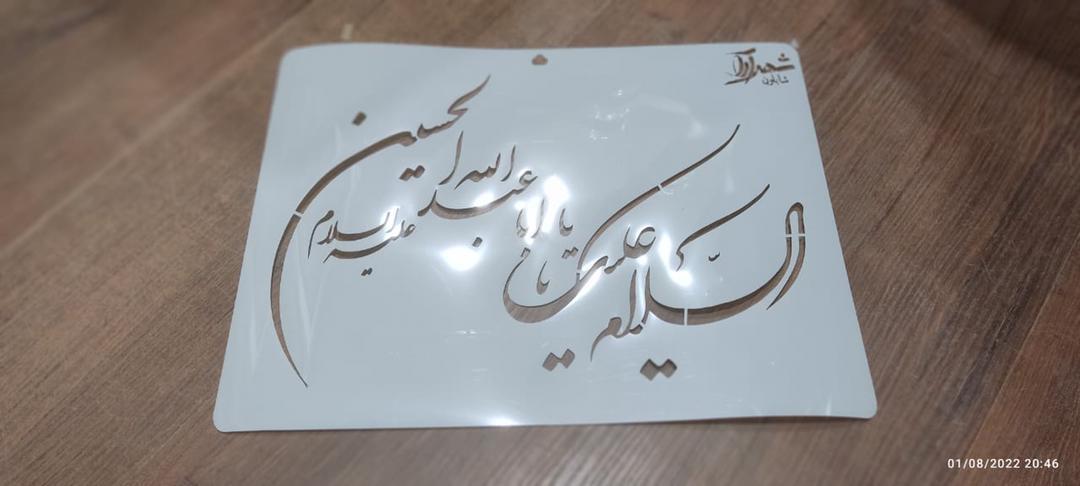 شهر آرا
شابلون
السّلام علیک یا اباعبدالله الحسین
علیه السلام
01/08/2022 20:46